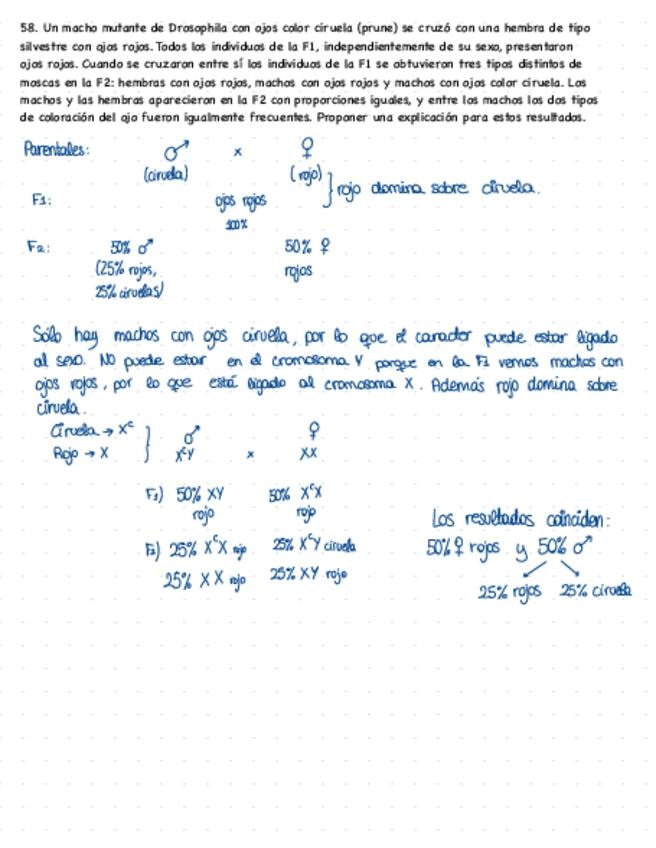 58. Un macho mutante de Drosophila con ojos color ciruela (prune) se cruzó con una hembra de tipo
silvestre con ojos rojos. Todos los individuos de la F1, independientemente de su sexo, presentaron
ojos rojos. Cuando se cruzaron entre sí los individuos de la F1 se obtuvieron tres tipos distintos de
moscas en la F2: hembras con ojos rojos, machos con ojos rojos y machos con ojos color ciruela. Los
machos y las hembras aparecieron en la F2 con proporciones iguales, y entre los machos los dos tipos
de coloración del ojo fueron igualmente frecuentes. Proponer una explicación para estos resultados.
Parentales: ♂ x ♀
(ciruela) (rojo) } rojo domina sobre ciruela.
F1: ojos rojos
100%
F2: 50% ♂ 50% ♀
(25% rojos, rojos
25% ciruelas)
Sólo hay machos con ojos ciruela, por lo que el caracter puede estar ligado
al sexo. No puede estar en el cromosoma Y porque en la F1 vemos machos con
ojos rojos, por lo que está ligado al cromosoma X. Además rojo domina sobre
ciruela.
Ciruela → Xᶜ } ♂ ♀
Rojo → X XᶜY x XX
F1) 50% XY 50% XᶜX
rojo rojo
F2) 25% XᶜX rojo 25% XᶜY ciruela
25% XX rojo 25% XY rojo
Los resultados coinciden:
50% ♀ rojos y 50% ♂
25% rojos 25% ciruela